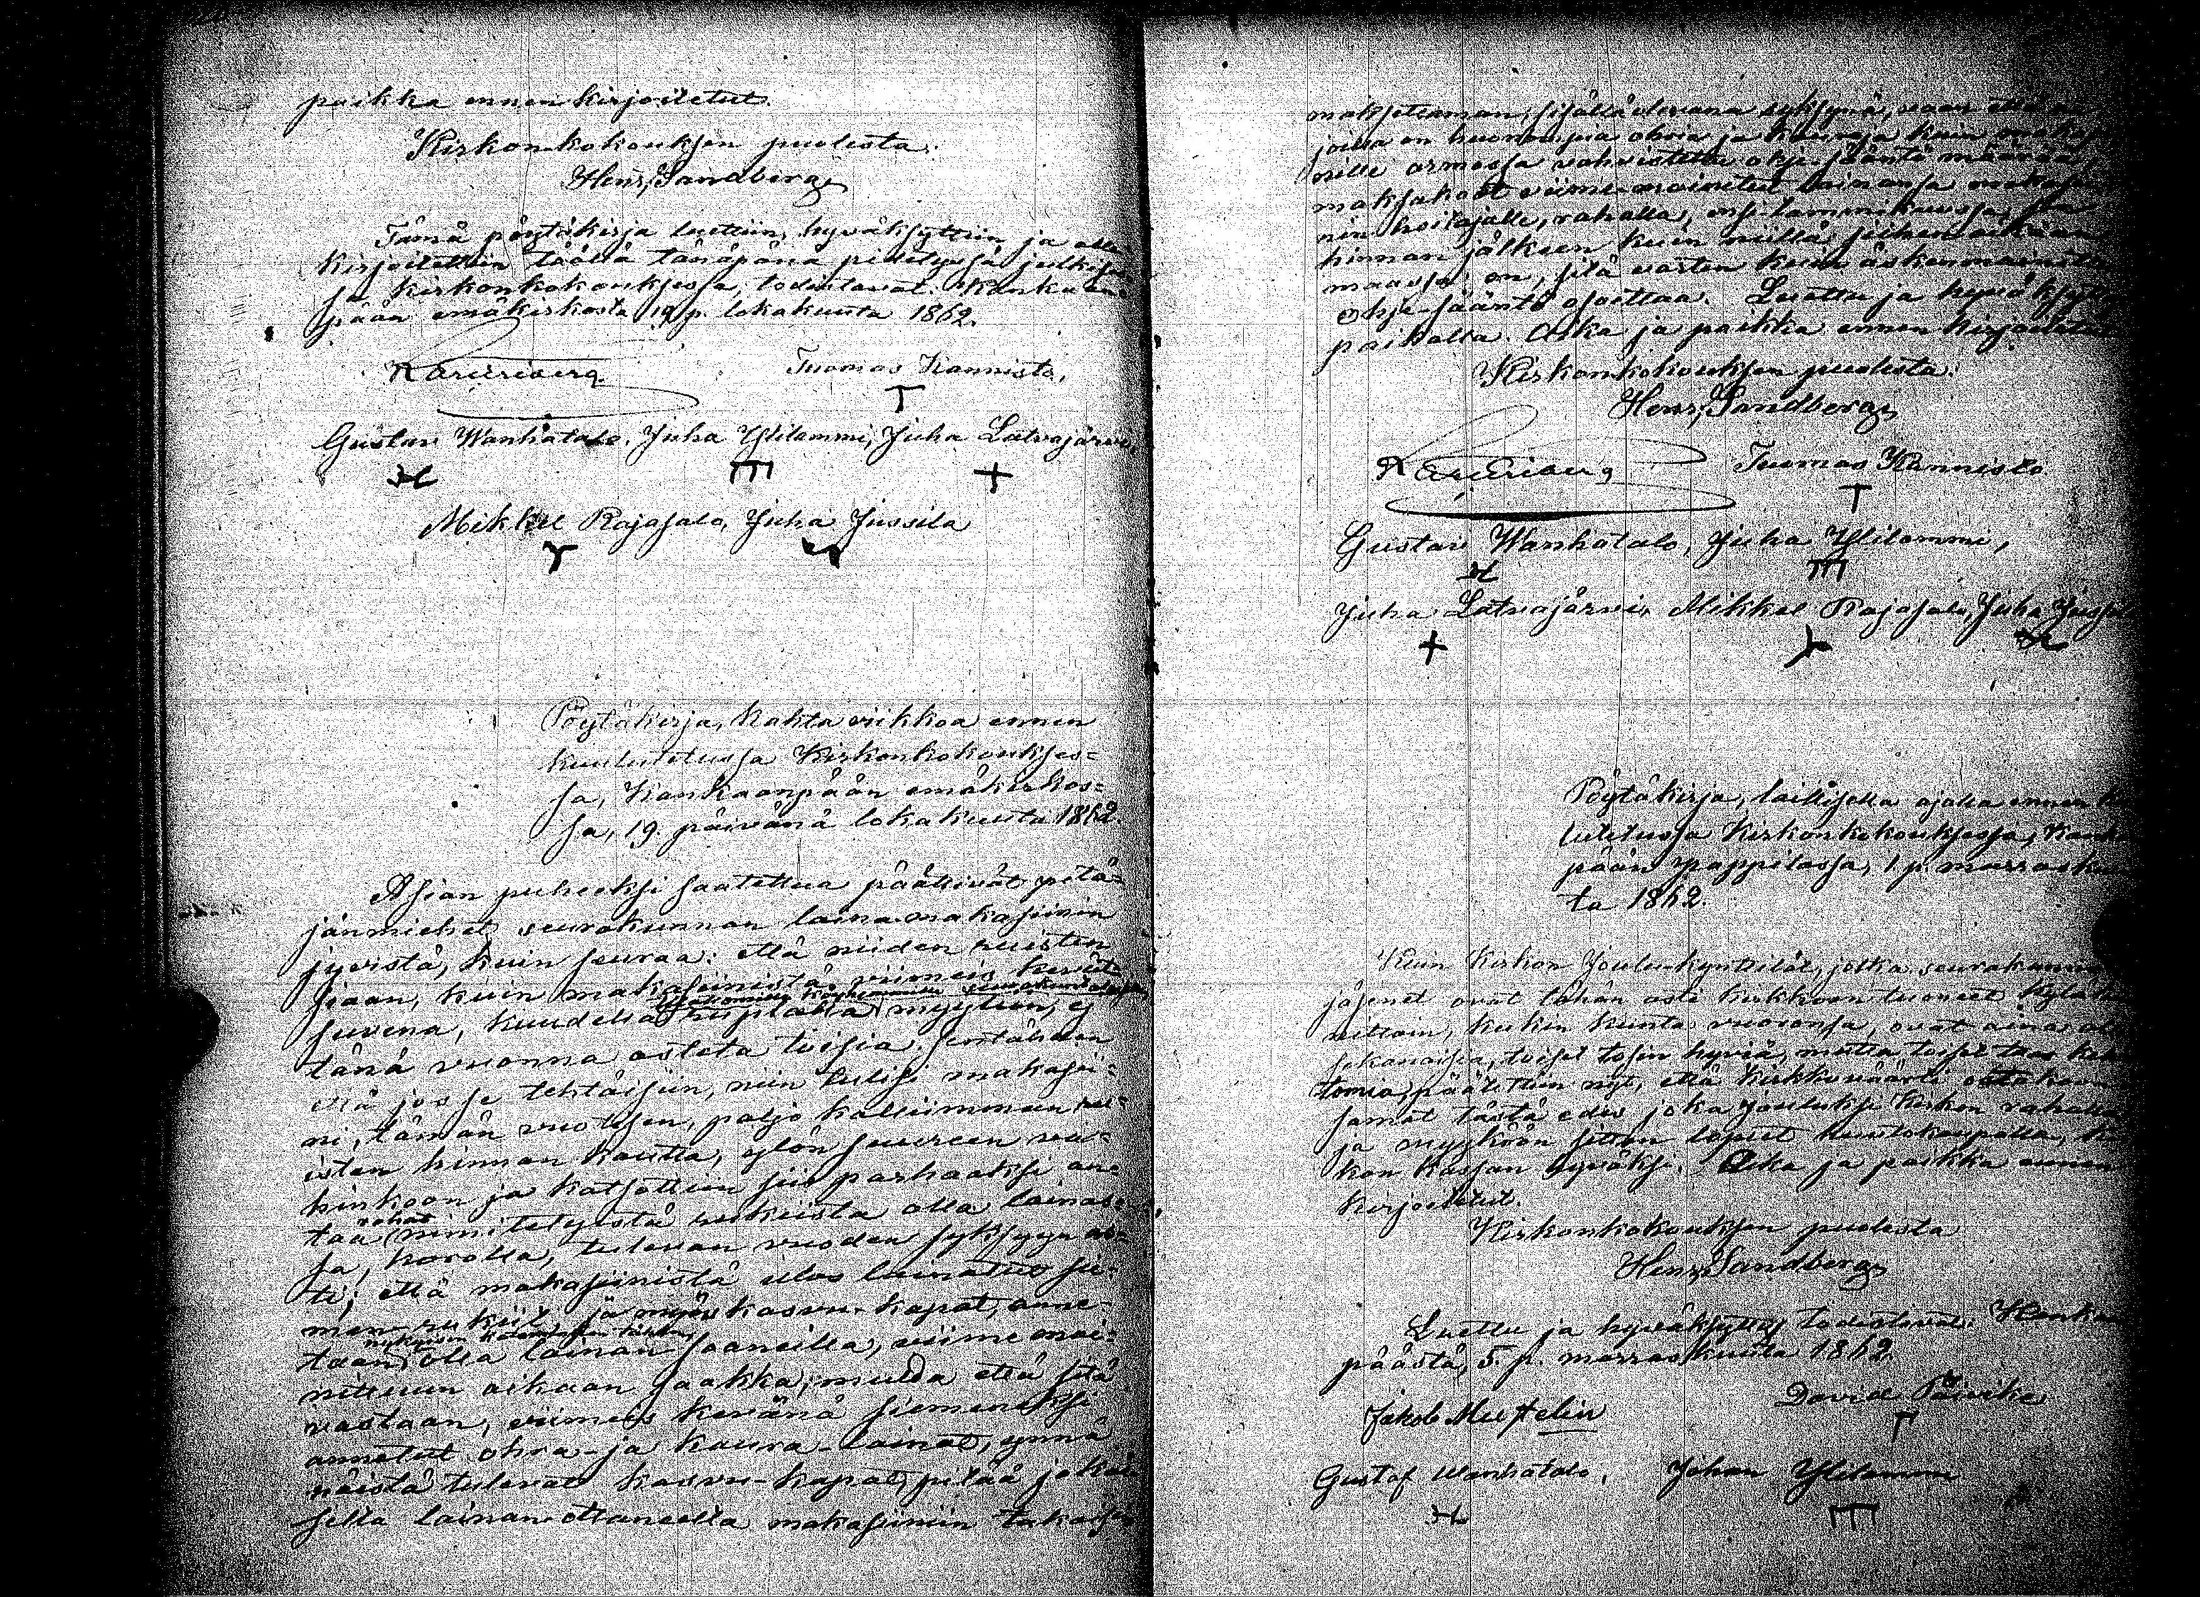 paikka ennen kirjoitetut.
Kirkonkokouksen puolesta:
Henr. Sandberg
Tämä pöytäkirja luettiin, hyväksyttiin ja alle
kirjoitettiin täällä tänäpänä pidetysä julkises
sa kirkonkokouksessa; todistavat. Kankaan-
pään emäkirkosta 19 p. lokakuuta 1862.
Tuomas Kannisto,
Gustav Wanhatalo, Juha Ylilammi, Juha Latvajärvi,
Mikkel Rajasalo, Juha Jussila
Pöytäkirja, kahta viikkoa ennen
kuulutetussa Kirkonkokoukses=
sa, Kankaanpään emäkirkos=
sa, 19. päivänä lokakuuta 1862.
Asian puheeksi saatettua päättivät pitä=
jänmiehet seurakunnan laina-makasiinin
jyvistä, kuin seuraa: että niiden ruisten
siaan, kuin makasiinista viimeis kevät
suvena, kuudella ruplalla myytiin, ej
tänä vuonna osteta toisia. sentähden
että jos se tehtäisiin, niin tulisi makasii=
ni, tämän vuotisen, paljo kalliimman ru=
isten hinnan kautta, ylön suureen va=
hinkoon ja katsottiin siis parhaaksi an=
taa rahat nimitetyistä rukeista olla lainas=
sa, korolla, tulevan vuoden syksyyn as=
ti; että makasiinista ulos lainatut sie=
men-rukiit, ja myös kasvu-kapat, anne=
taan olla lainan saaneilla, viime mai=
nittuun aikaan saakka; mutta että sitä
vastaan, viimeis kevänä siemeneksi
annetut ohra- ja kaura-lainat, ynnä
näistä tulevat kasvu-kapat, pitää jokai
sella lainan ottaneella makasiiniin takasin
maksettaman, sisällä olevana syksynä, vaan että
joilla on huonompia ohria ja kauroja kuin
nille armossa vahvistettu ohje-sääntö määrää
maksakoot viime-mainitut lainansa makasii
nin hoitajalle, rahalla, ensi tammikuussa, sen
hinnan jälkeen kuin niillä siihen aikaan
maassa on, sitä varten kuin äskenmainittu
ohje-sääntö osoittaa. Luettu ja hyväksytty
paikalla. Aika ja paikka ennen kirjoitetut
Kirkonkokouksen puolesta:
Henr. Sandberg
Tuomas Kannisto
Gustav Wanhatalo, Juha Ylilammi,
Juha Latvajärvi, Mikkel Rajasalo, Juha Jussila
Pöytäkirja, laillisella ajalla ennen ku
lutetussa Kirkonkokouksessa, Kankaan
pään Pappilassa, 1 p. marrasku
ta 1862.
Kuin Kirkon Joulu-kynttilät, jotka seurakunnan
jäsenet ovat tähän asti kirkkoon tuoneet kyläku
nittain, kukin kunta vuoronsa, ovat aina ol
sekanaisia, toiset tosin hyviä, mutta toiset taas kel
tomia, päätettiin nyt, että kirkkoväärti ostakoon
samat tästä edes joka jouluksi kirkon rahalla
ja myyköön sitten lopuet huutokaupalla, kir
kon kassan hyväksi. Aika ja paikka ennen
kirjoitetut.
Kirkonkokouksen puolesta
Henr. Sandberg
Luettu ja hyväksytty todistavat. Kankaan
päästä, 5. p. marraskuuta 1862.
Jakob Mustelin
David Päivike
Gustaf Wanhatalo, Johan Ylilammi